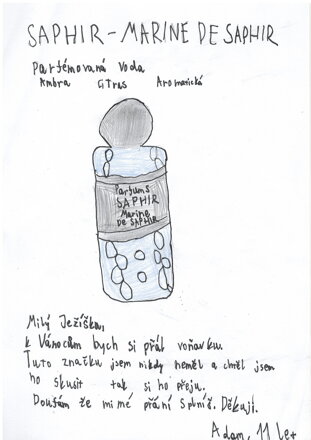 SAPHIR - MARINE DE SAPHIR
Parfémovaná voda
Ambra Citrus Aromatická
Parfums
SAPHIR
Marine
de SAPHIR
Milý Ježíšku,
k Vánocům bych si přál voňavku.
Tuto značku jsem nikdy neměl a chtěl jsem
ho skusit tak si ho přeju.
Doufám že mi mé přání splníš. Děkuji.
Adam, 11 let